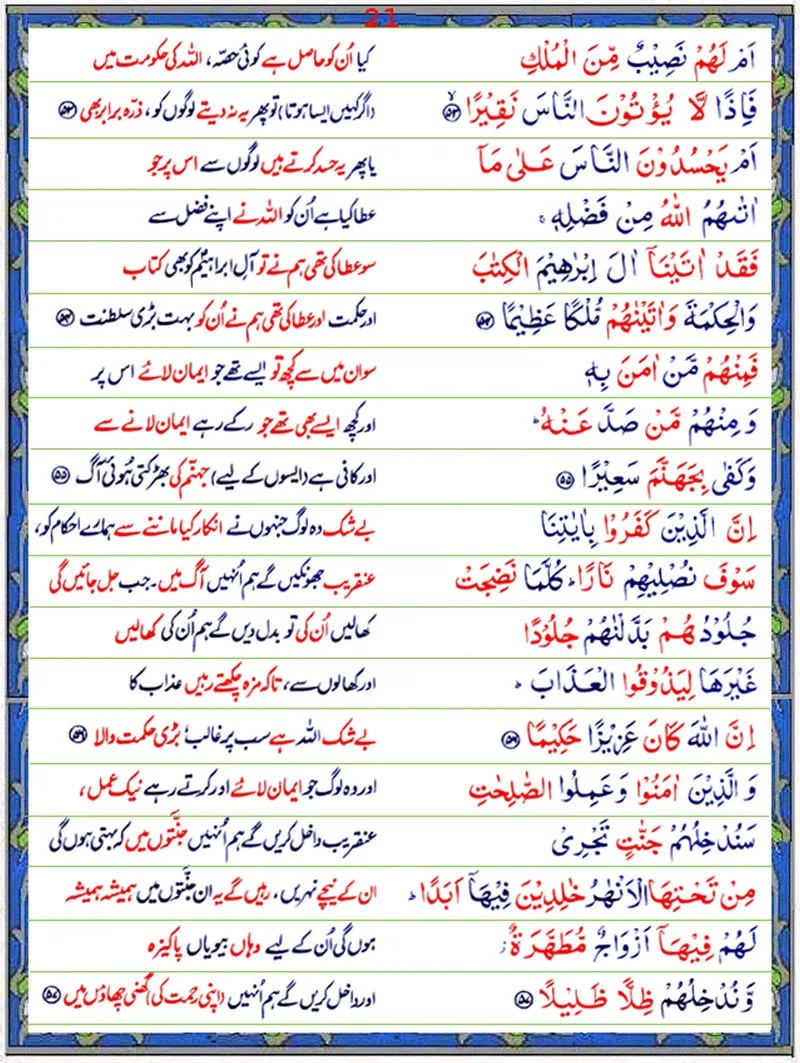 21
اَمْ لَهُمْ نَصِيْبٌ مِّنَ الْمُلْكِ کیا اُن کو حاصل ہے کوئی حصّہ، اللہ کی حکومت میں
فَاِذًا لَّا يُؤْتُوْنَ النَّاسَ نَقِيْرًا ۙ﴿۵۳﴾ (اگر کہیں ایسا ہوتا) تو پھر یہ نہ دیتے لوگوں کو، ذرّہ برابر بھی ﴿۵۳﴾
اَمْ يَحْسُدُوْنَ النَّاسَ عَلٰى مَآ یا پھر یہ حسد کرتے ہیں لوگوں سے اس پر جو
اٰتٰىهُمُ اللّٰهُ مِنْ فَضْلِهٖ ۚ عطا کیا ہے اُن کو اللہ نے اپنے فضل سے
فَقَدْ اٰتَيْنَآ اٰلَ اِبْرٰهِيْمَ الْكِتٰبَ سو عطا کی تھی ہم نے تو آلِ ابراہیمؑ کو بھی کتاب
وَالْحِكْمَةَ وَاٰتَيْنٰهُمْ مُّلْكًا عَظِيْمًا ﴿۵۴﴾ اور حکمت اور عطا کی تھی ہم نے اُن کو بہت بڑی سلطنت ﴿۵۴﴾
فَمِنْهُمْ مَّنْ اٰمَنَ بِهٖ سو ان میں سے کچھ تو ایسے تھے جو ایمان لائے اس پر
وَمِنْهُمْ مَّنْ صَدَّ عَنْهُ ؕ اور کچھ ایسے بھی تھے جو رکے رہے ایمان لانے سے
وَكَفٰى بِجَهَنَّمَ سَعِيْرًا ﴿۵۵﴾ اور کافی ہے (ایسوں کے لیے) جہنّم کی بھڑکتی ہُوئی آگ ﴿۵۵﴾
اِنَّ الَّذِيْنَ كَفَرُوْا بِاٰيٰتِنَا بے شک وہ لوگ جنہوں نے انکار کیا ماننے سے ہمارے احکام کو،
سَوْفَ نُصْلِيْهِمْ نَارًا ؕ كُلَّمَا نَضِجَتْ عنقریب جھونکیں گے ہم اُنہیں آگ میں۔ جب جل جائیں گی
جُلُوْدُهُمْ بَدَّلْنٰهُمْ جُلُوْدًا کھالیں اُن کی تو بدل دیں گے ہم اُن کی کھالیں
غَيْرَهَا لِيَذُوْقُوا الْعَذَابَ ؕ اور کھالوں سے، تاکہ مزہ چکھتے رہیں عذاب کا
اِنَّ اللّٰهَ كَانَ عَزِيْزًا حَكِيْمًا ﴿۵۶﴾ بے شک اللہ ہے سب پر غالب، بڑی حکمت والا ﴿۵۶﴾
وَالَّذِيْنَ اٰمَنُوْا وَعَمِلُوا الصّٰلِحٰتِ اور وہ لوگ جو ایمان لائے اور کرتے رہے نیک عمل،
سَنُدْخِلُهُمْ جَنّٰتٍ تَجْرِىْ عنقریب داخل کریں گے ہم اُنہیں جنّتوں میں کہ بہتی ہوں گی
مِنْ تَحْتِهَا الْاَنْهٰرُ خٰلِدِيْنَ فِيْهَآ اَبَدًا ؕ ان کے نیچے نہریں، رہیں گے یہ ان جنّتوں میں ہمیشہ ہمیشہ
لَهُمْ فِيْهَآ اَزْوَاجٌ مُّطَهَّرَةٌ ؗ ہوں گی اُن کے لیے وہاں بیویاں پاکیزہ
وَّنُدْخِلُهُمْ ظِلًّا ظَلِيْلًا ﴿۵۷﴾ اور داخل کریں گے ہم اُنہیں (اپنی رحمت کی) گھنی چھاؤں میں ﴿۵۷﴾